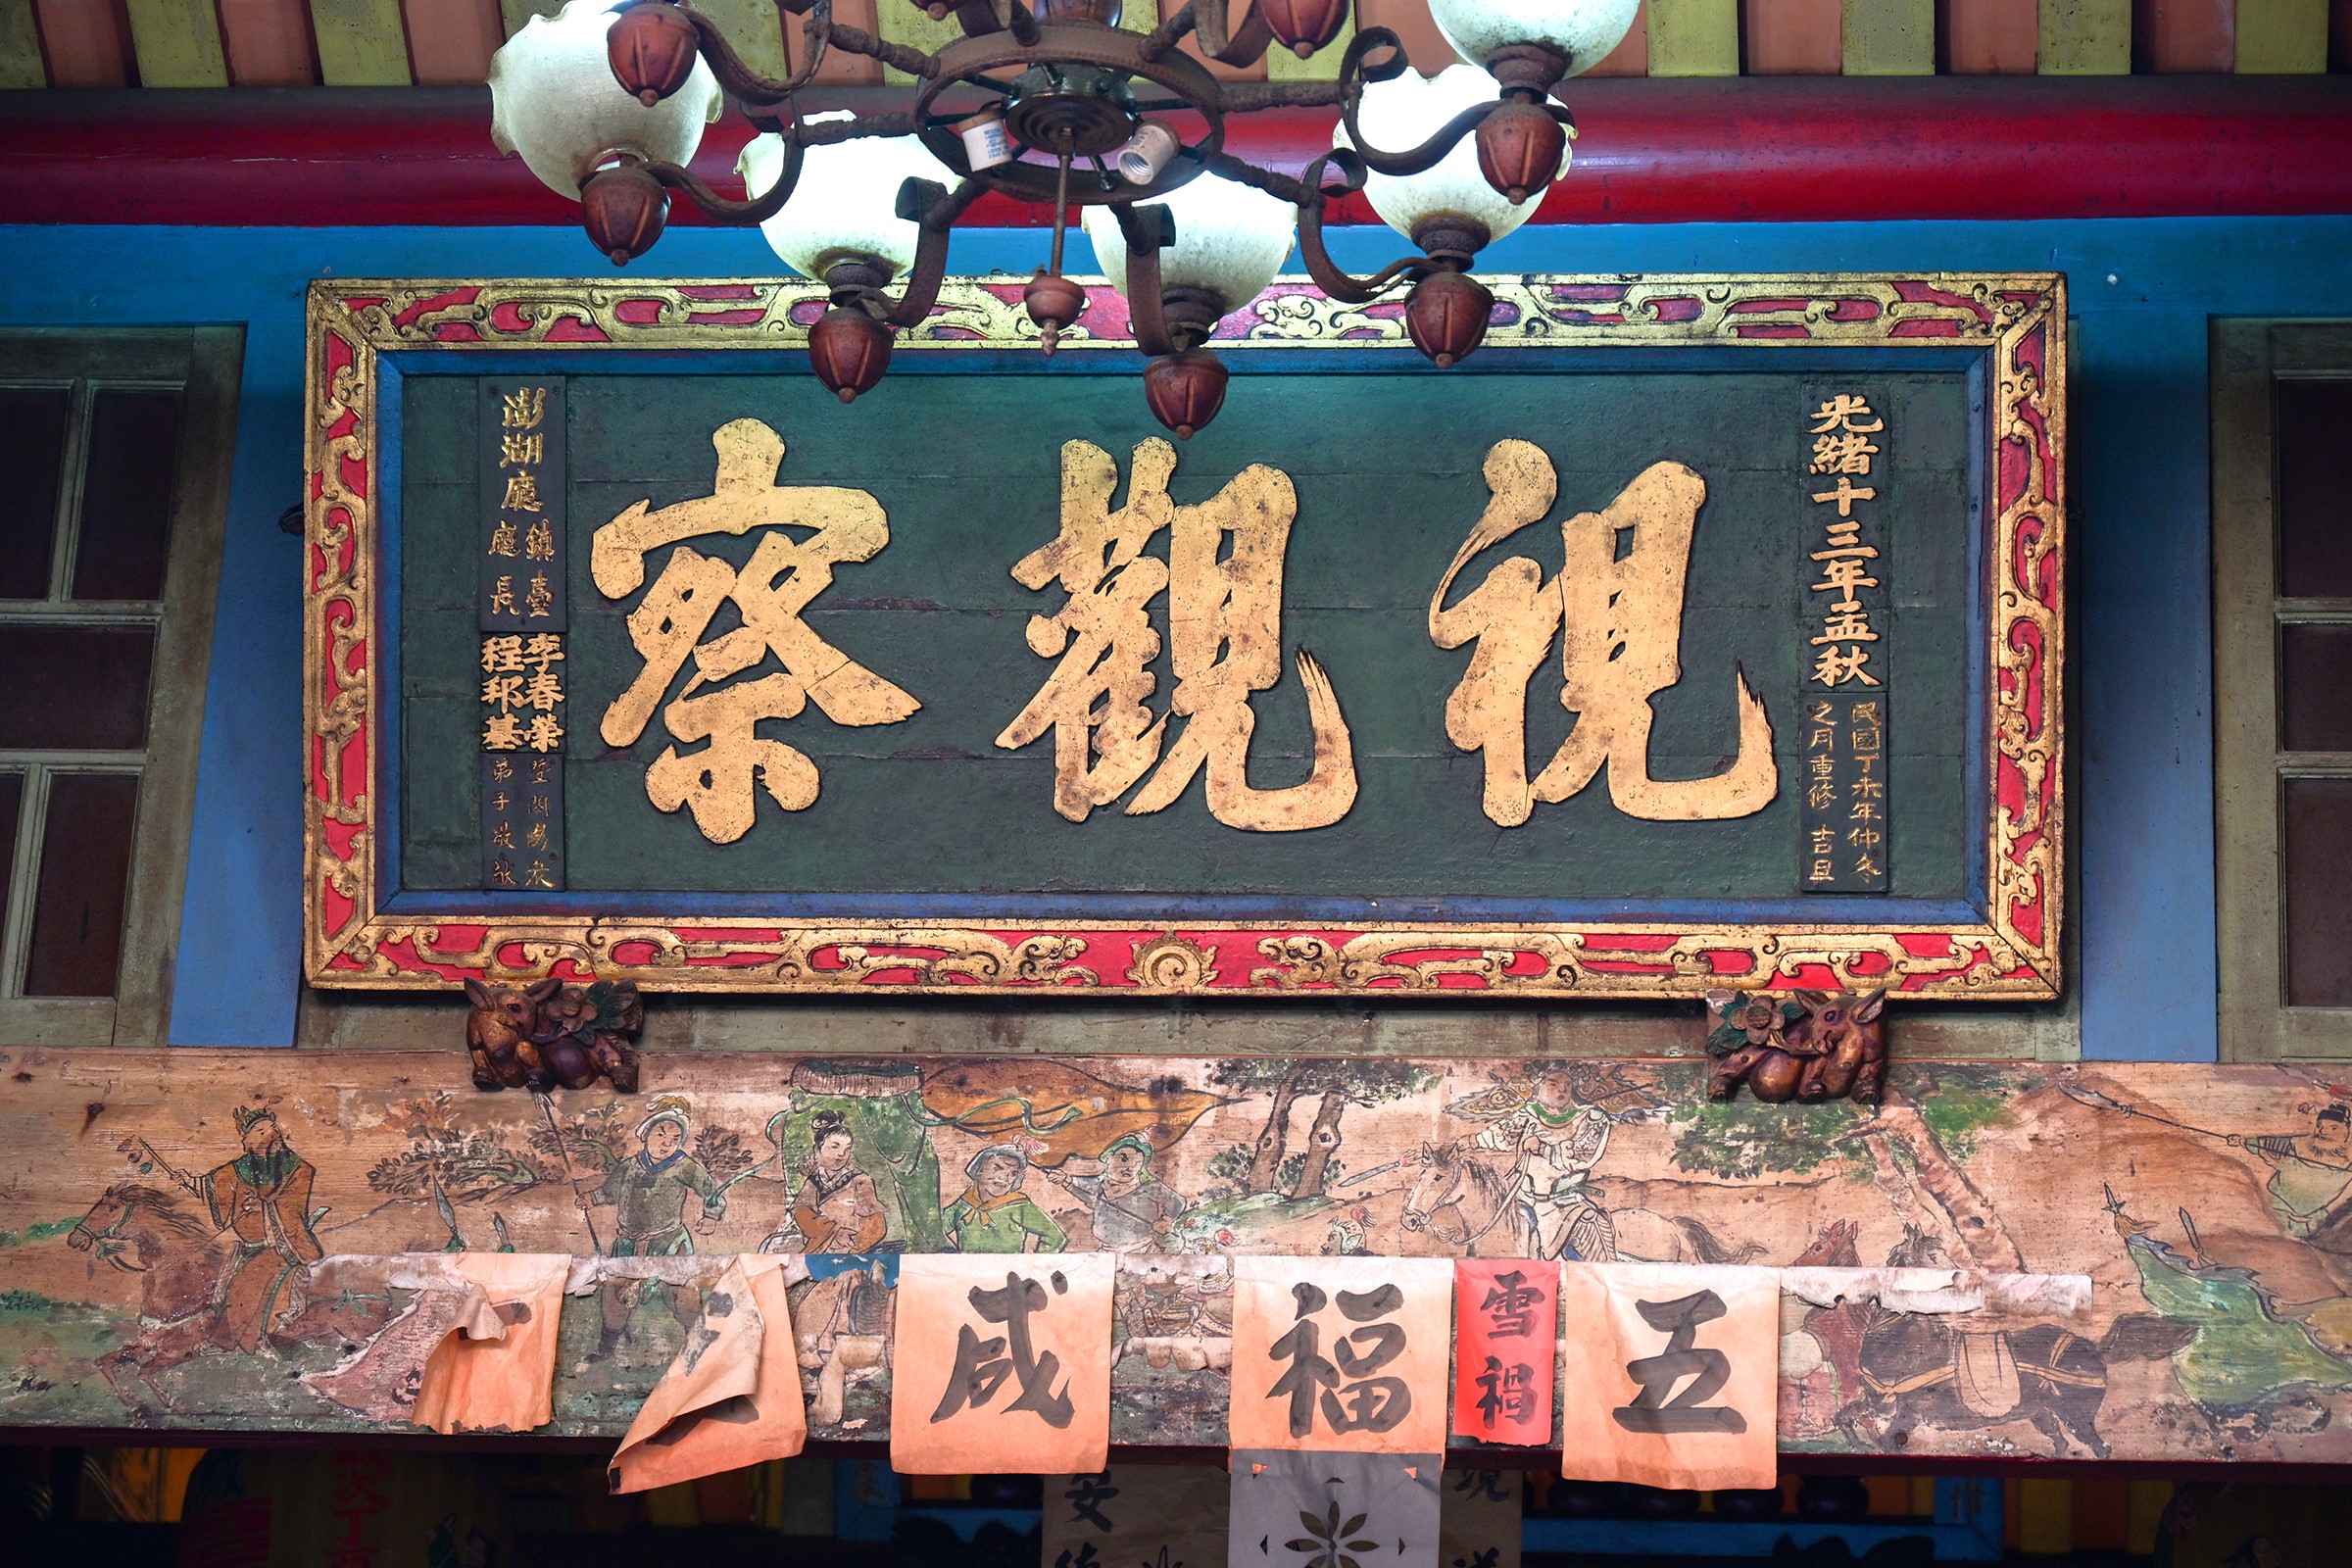 光緒十三年孟秋
民國丁未年仲冬
之月重修 吉旦
視觀察
澎湖廳
鎮臺
廳長
李春榮
程邦基
弟子敬獻
五
雪禍
福
咸
安